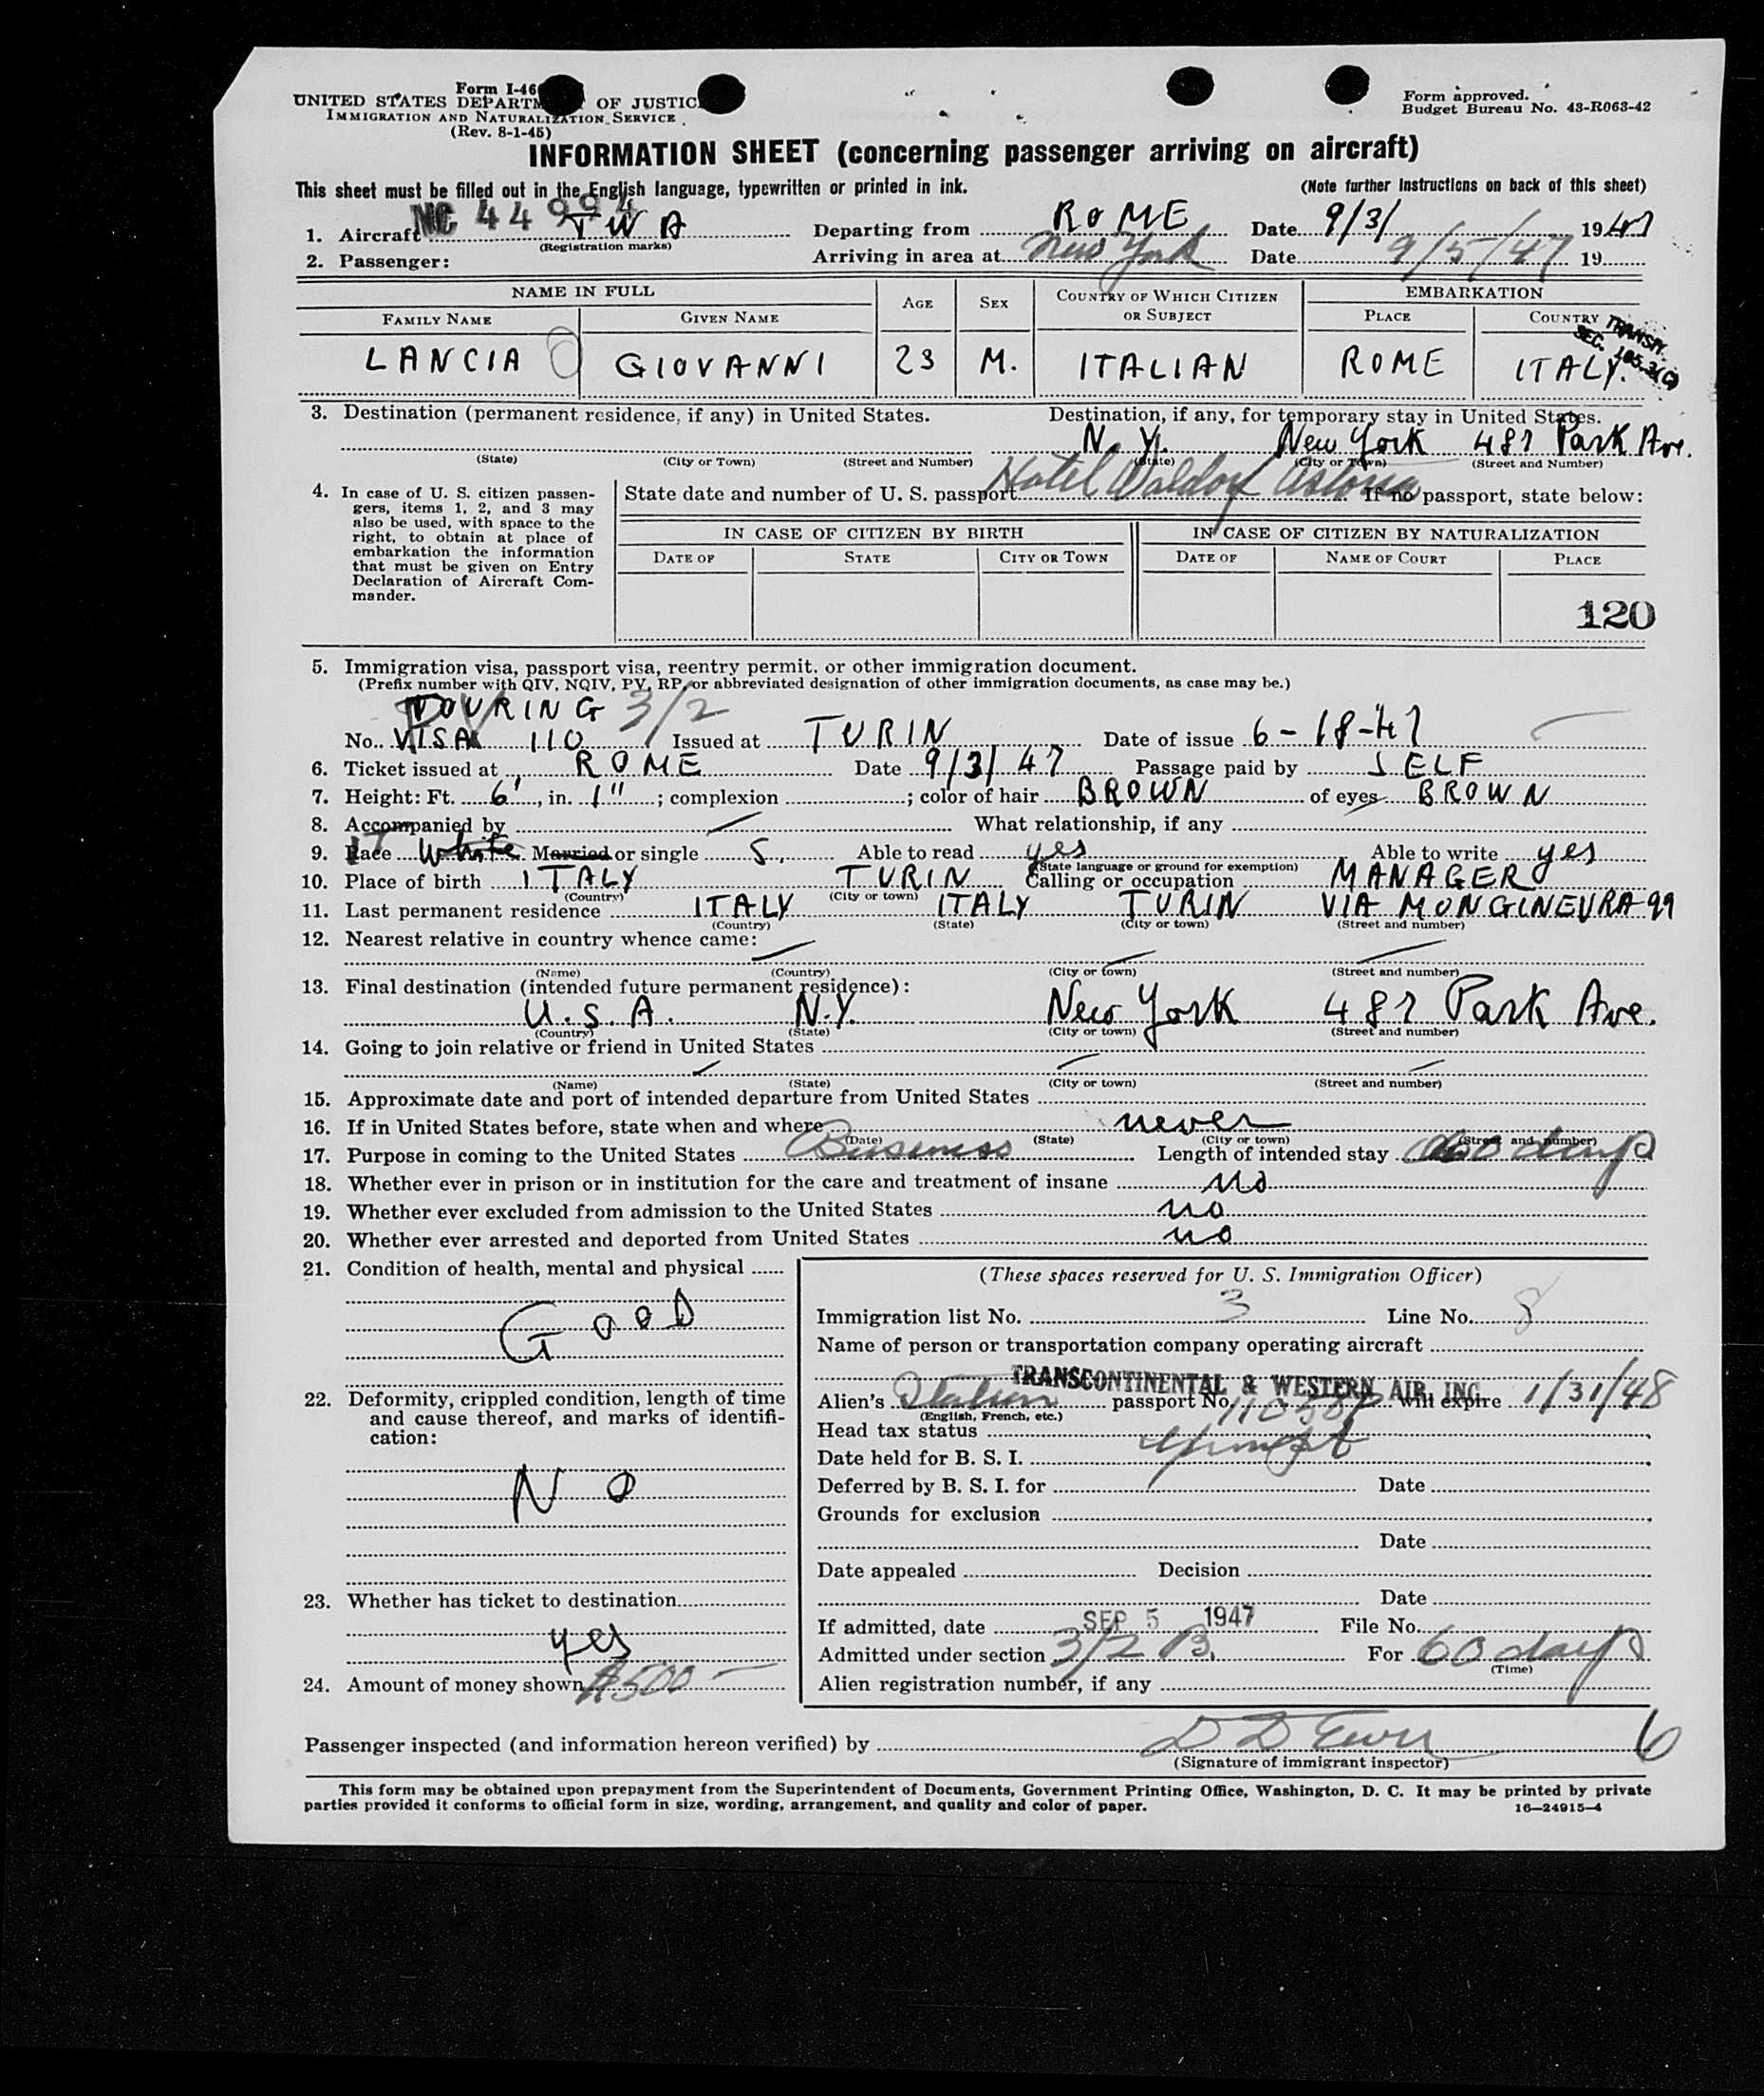 Form I-46
UNITED STATES DEPARTM OF JUSTIC
IMMIGRATION AND NATURALIZATION SERVICE
(Rev. 8-1-45)
Form approved.
Budget Bureau No. 43-R063-42
INFORMATION SHEET (concerning passenger arriving on aircraft)
This sheet must be filled out in the English language, typewritten or printed in ink. (Note further instructions on back of this sheet)
NC 44994
1. Aircraft TWA Departing from ROME Date 9/3/ 1947
(Registration marks)
2. Passenger: Arriving in area at New York Date 9/5/47 19
NAME IN FULL AGE SEX COUNTRY OF WHICH CITIZEN OR SUBJECT EMBARKATION
FAMILY NAME GIVEN NAME PLACE COUNTRY
TRANSIT.
SEC. 105.3(C)
LANCIA GIOVANNI 23 M. ITALIAN ROME ITALY.
3. Destination (permanent residence, if any) in United States. Destination, if any, for temporary stay in United States.
N.Y. New York 487 Park Ave.
(State) (City or Town) (Street and Number) (State) (City or Town) (Street and Number)
Hotel Waldorf Astoria
4. In case of U. S. citizen passengers, items 1, 2, and 3 may also be used, with space to the right, to obtain at place of embarkation the information that must be given on Entry Declaration of Aircraft Commander.
State date and number of U. S. passport If no passport, state below:
IN CASE OF CITIZEN BY BIRTH IN CASE OF CITIZEN BY NATURALIZATION
DATE OF STATE CITY OR TOWN DATE OF NAME OF COURT PLACE
120
5. Immigration visa, passport visa, reentry permit, or other immigration document.
(Prefix number with QIV, NQIV, PV, RP, or abbreviated designation of other immigration documents, as case may be.)
TOURING 3/2
No. VISA 110 Issued at TURIN Date of issue 6-18-47
6. Ticket issued at ROME Date 9/3/47 Passage paid by SELF
7. Height: Ft. 6', in. 1"; complexion ; color of hair BROWN of eyes BROWN
8. Accompanied by What relationship, if any
9. Race White Married or single S. Able to read yes Able to write yes
(State language or ground for exemption)
10. Place of birth ITALY TURIN Calling or occupation MANAGER
(Country) (City or town)
11. Last permanent residence ITALY ITALY TURIN VIA MONGINEVRA 99
(Country) (State) (City or town) (Street and number)
12. Nearest relative in country whence came:
(Name) (Country) (City or town) (Street and number)
13. Final destination (intended future permanent residence):
U.S.A. N.Y. New York 487 Park Ave.
(Country) (State) (City or town) (Street and number)
14. Going to join relative or friend in United States
(Name) (State) (City or town) (Street and number)
15. Approximate date and port of intended departure from United States
16. If in United States before, state when and where never
(Date) (State) (City or town) (Street and number)
17. Purpose in coming to the United States Business Length of intended stay 60 days
18. Whether ever in prison or in institution for the care and treatment of insane no
19. Whether ever excluded from admission to the United States no
20. Whether ever arrested and deported from United States no
21. Condition of health, mental and physical
GOOD
22. Deformity, crippled condition, length of time and cause thereof, and marks of identification:
NO
23. Whether has ticket to destination
yes
24. Amount of money shown $500 -
(These spaces reserved for U. S. Immigration Officer)
Immigration list No. 3 Line No. 8
Name of person or transportation company operating aircraft
TRANSCONTINENTAL & WESTERN AIR, INC.
Alien's Italian passport No. will expire 1/31/48
(English, French, etc.)
Head tax status
Date held for B. S. I.
Deferred by B. S. I. for Date
Grounds for exclusion
Date
Date appealed Decision
Date
If admitted, date SEP 5 1947 File No.
Admitted under section 3/2 B. For 60 days
(Time)
Alien registration number, if any
Passenger inspected (and information hereon verified) by
(Signature of immigrant inspector)
6
This form may be obtained upon prepayment from the Superintendent of Documents, Government Printing Office, Washington, D. C. It may be printed by private
parties provided it conforms to official form in size, wording, arrangement, and quality and color of paper. 16—24915-4